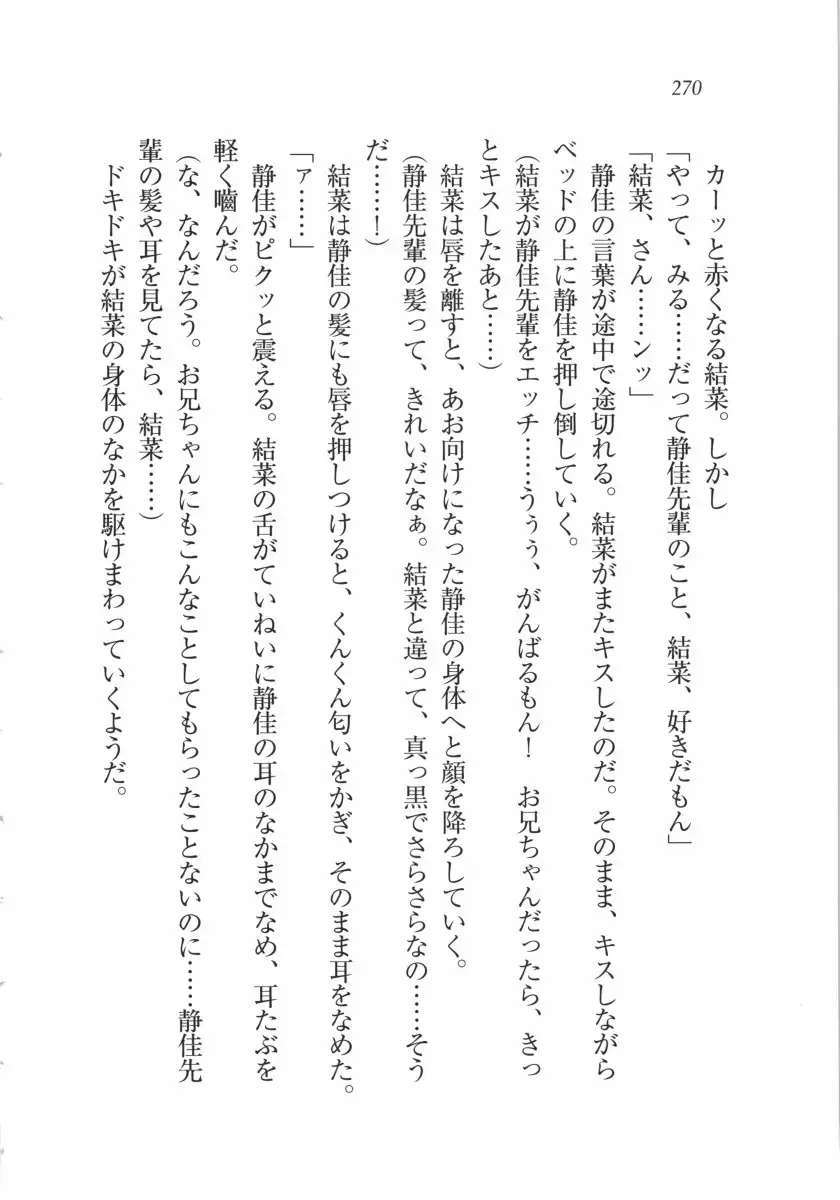 270
カーッと赤くなる結菜。しかし
「やって、みる……だって静佳先輩のこと、結菜、好きだもん」
「結菜、さん……ンッ」
静佳の言葉が途中で途切れる。結菜がまたキスしたのだ。そのまま、キスしながら
ベッドの上に静佳を押し倒していく。
（結菜が静佳先輩をエッチ……うぅぅ、がんばるもん！　お兄ちゃんだったら、きっ
とキスしたあと……）
結菜は唇を離すと、あお向けになった静佳の身体へと顔を降ろしていく。
（静佳先輩の髪って、きれいだなぁ。結菜と違って、真っ黒でさらさらなの……そう
だ……！）
結菜は静佳の髪にも唇を押しつけると、くんくん匂いをかぎ、そのまま耳をなめた。
「ァ……」
静佳がピクッと震える。結菜の舌がていねいに静佳の耳のなかまでなめ、耳たぶを
軽く嚙んだ。
（な、なんだろう。お兄ちゃんにもこんなことしてもらったことないのに……静佳先
輩の髪や耳を見てたら、結菜……）
ドキドキが結菜の身体のなかを駆けまわっていくようだ。